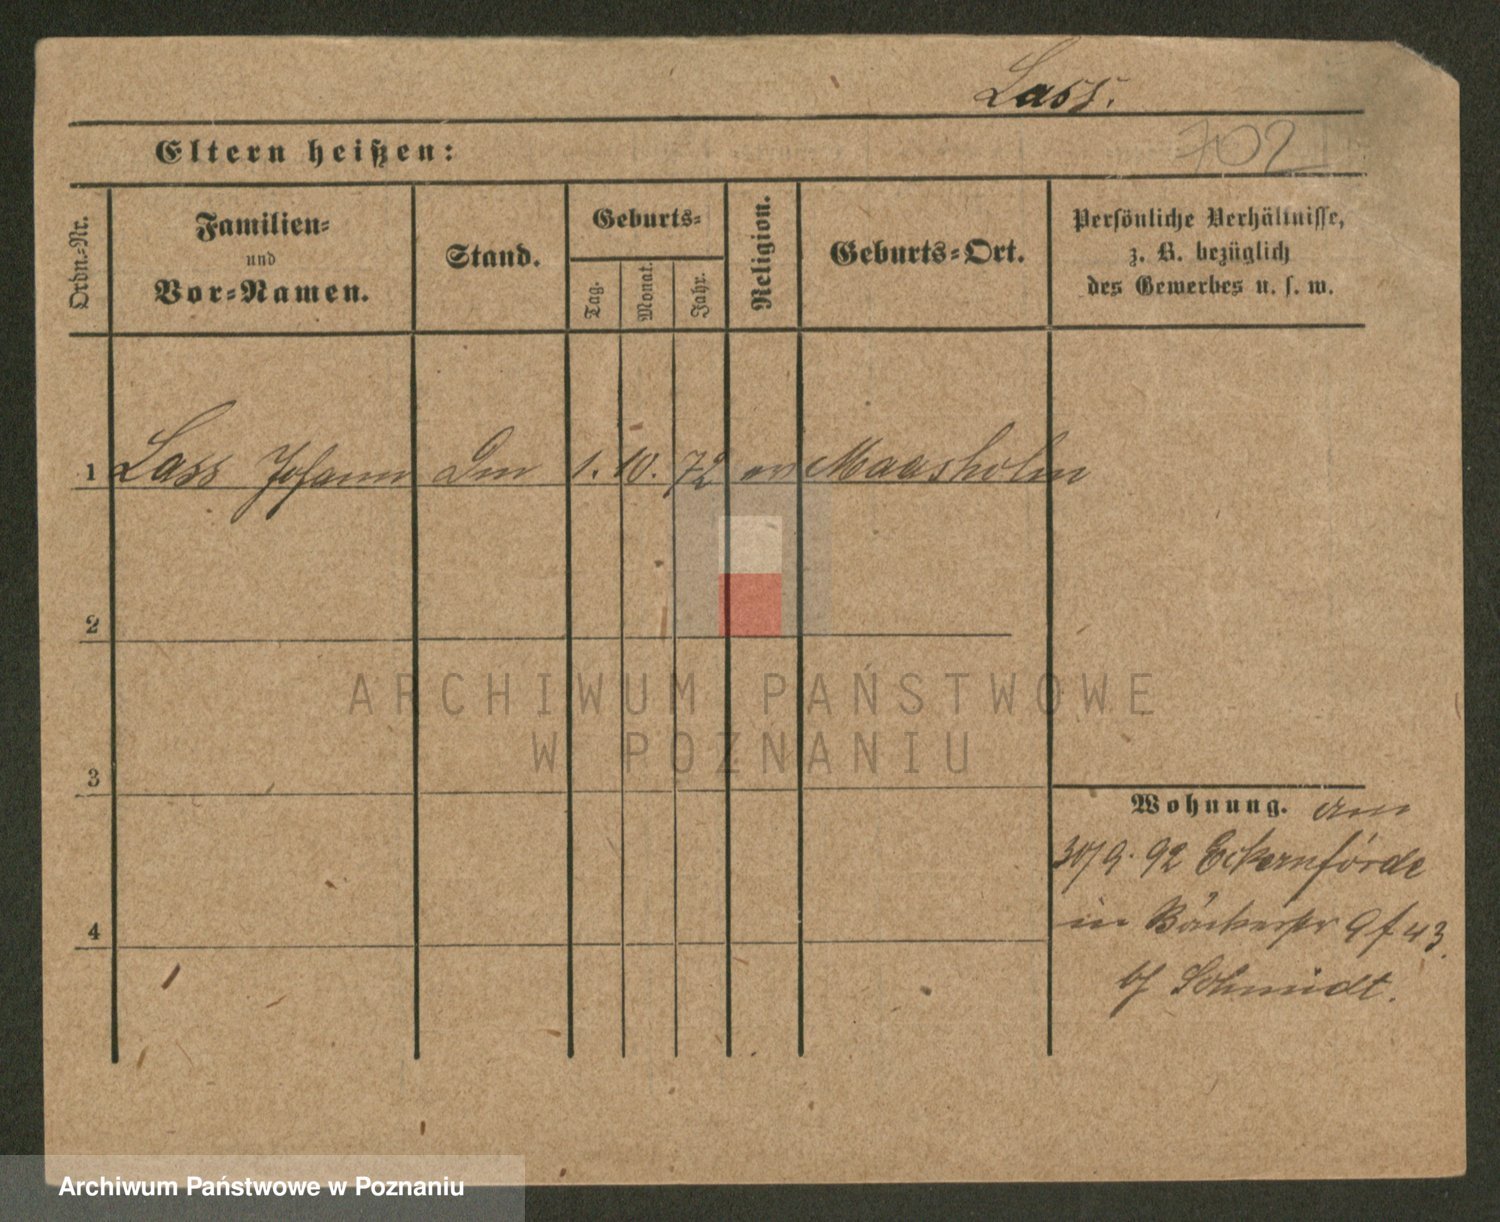 Lass.
702
Eltern heißen:
Ordn.-Nr.
Familien-
und
Vor-Namen.
Stand.
Geburts-
Tag.
Monat.
Jahr.
Religion.
Geburts-Ort.
Persönliche Verhältnisse,
z. B. bezüglich
des Gewerbes u. s. w.
1 Lass Johann 1. 10. 72 ev Maasholm
2
3
4
Wohnung. am
30/9. 92 Eckernförde
in Bäckerstr 43.
b/ Schmidt.
ARCHIWUM PAŃSTWOWE
W POZNANIU
Archiwum Państwowe w Poznaniu